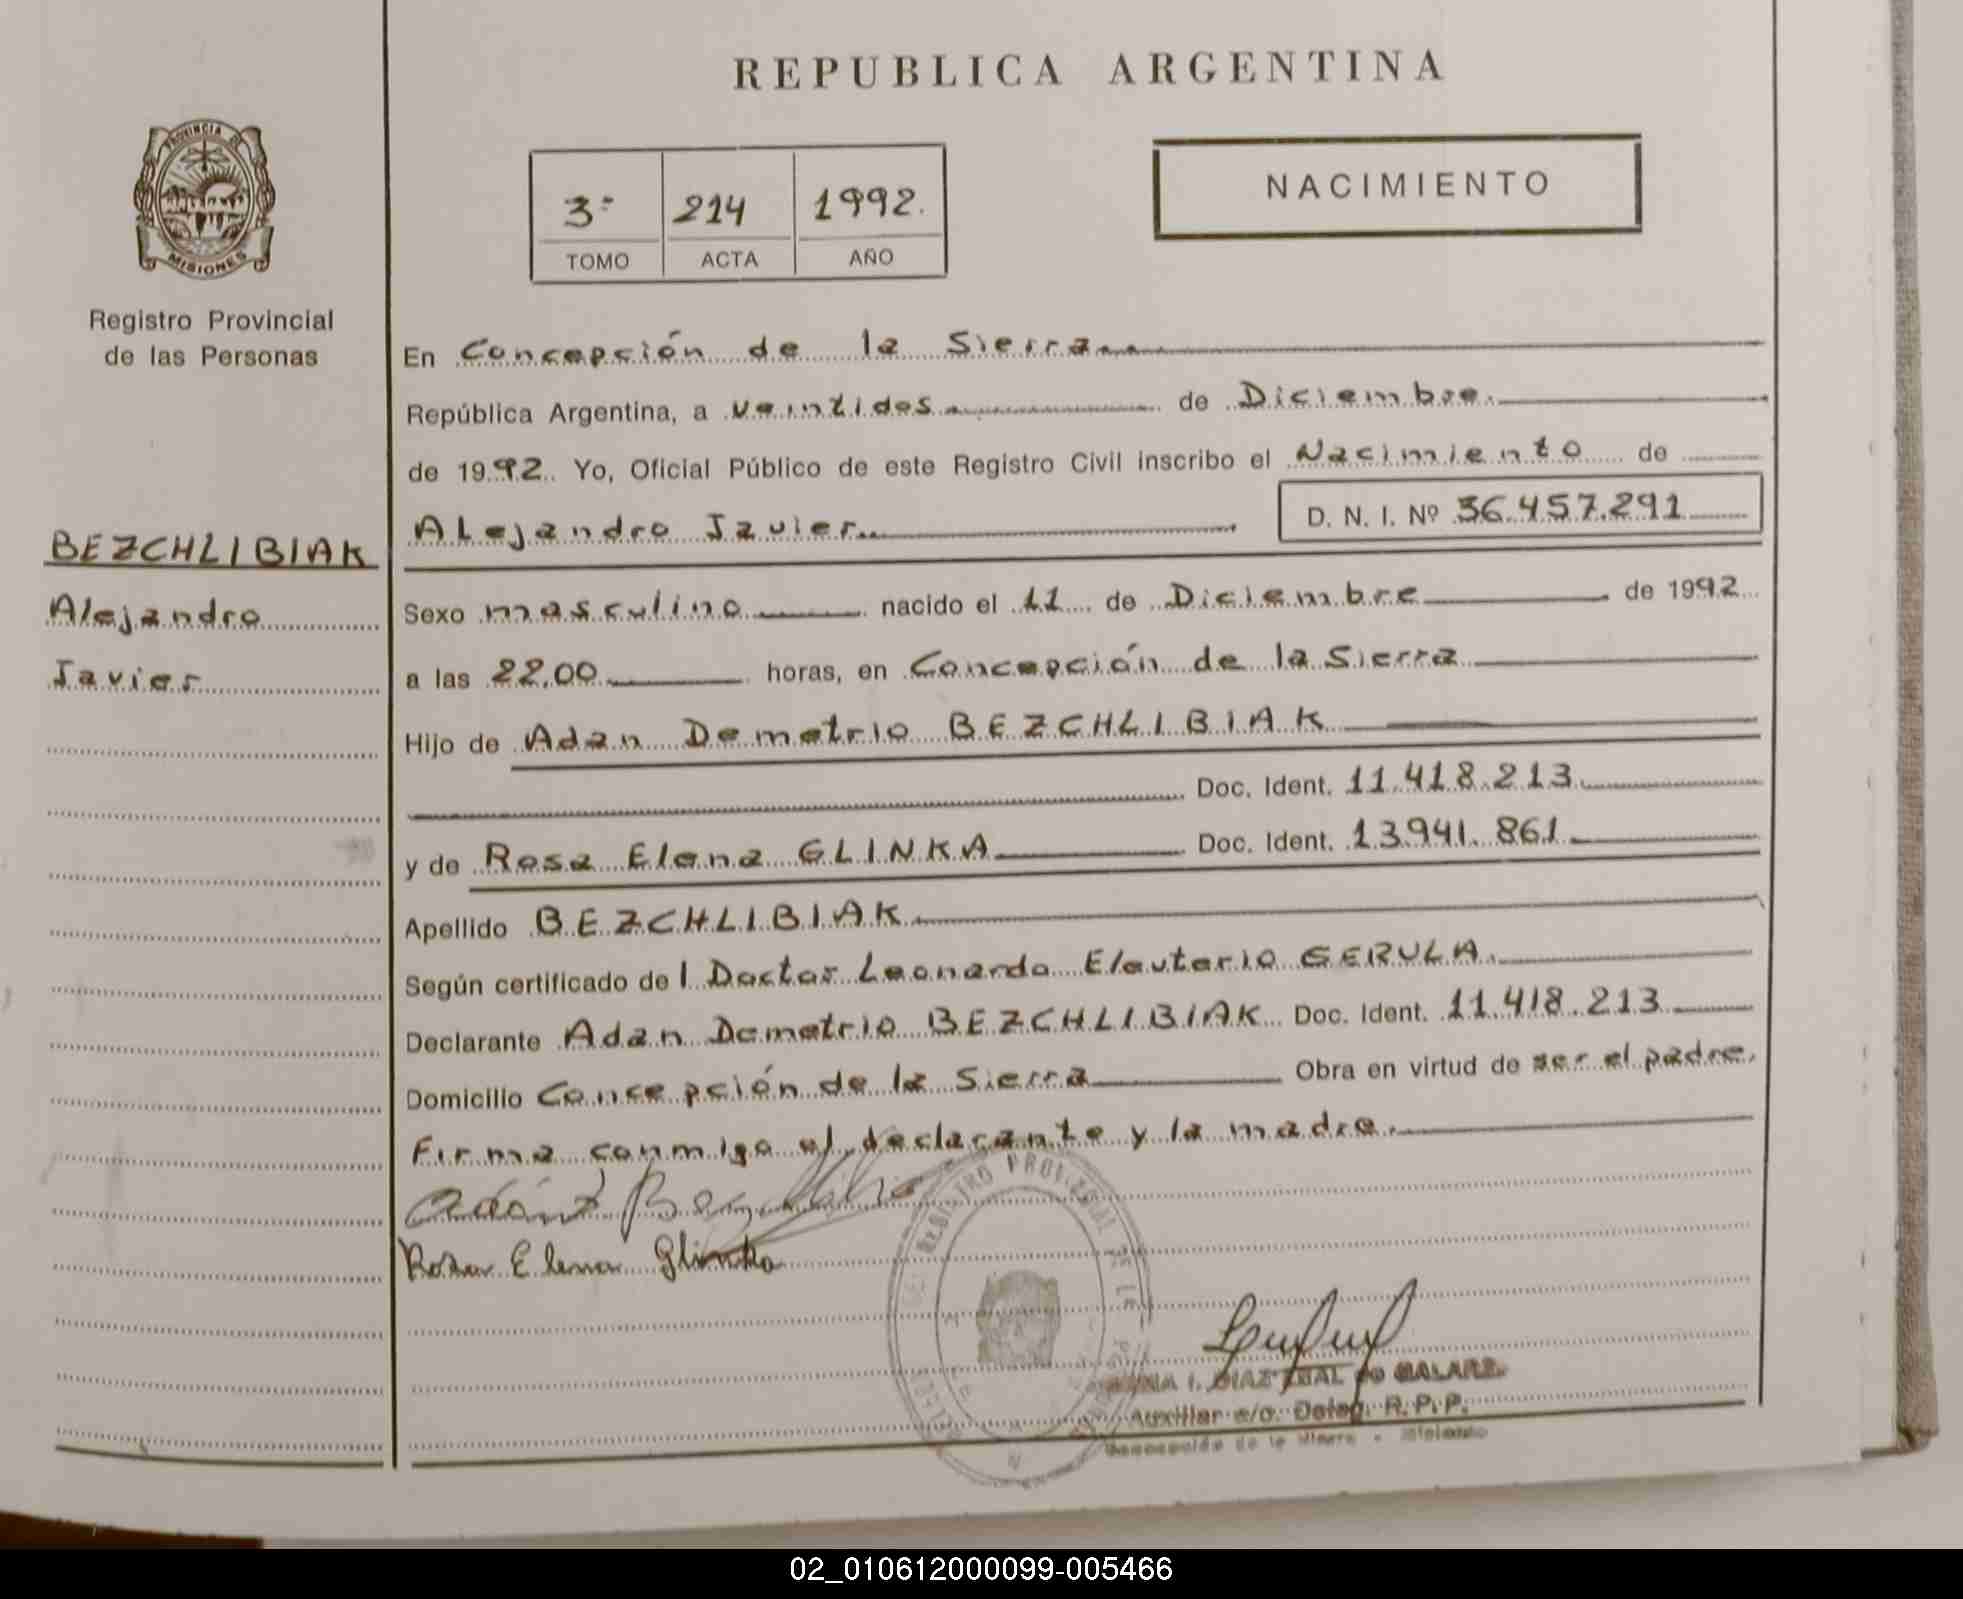 REPUBLICA ARGENTINA
PROVINCIA DE
MISIONES
Registro Provincial
de las Personas
3º 214 1992.
TOMO ACTA AÑO
NACIMIENTO
BEZCHLIBIAK
Alejandro
Javier
En Concepción de la Sierra
República Argentina, a veintidos de Diciembre.
de 1992. Yo, Oficial Público de este Registro Civil inscribo el Nacimiento de
Alejandro Javier D. N. I. Nº 36.457.291
Sexo masculino nacido el 11 de Diciembre de 1992
a las 22,00 horas, en Concepción de la Sierra
Hijo de Adan Demetrio BEZCHLIBIAK
Doc. Ident. 11.418.213
y de Rosa Elena GLINKA Doc. Ident. 13.941.861
Apellido BEZCHLIBIAK
Según certificado de l Doctor Leonardo Eleuterio GERULA.
Declarante Adan Demetrio BEZCHLIBIAK Doc. Ident. 11.418.213
Domicilio Concepción de la Sierra Obra en virtud de ser el padre.
Firma conmigo el declarante y la madre.
Rosa Elena Glinka
REGISTRO PROVINCIAL DE LAS
I. DIAZ
Auxiliar e/o. Deleg. R. P. P.
Concepción de la Sierra - Misiones
02_010612000099-005466